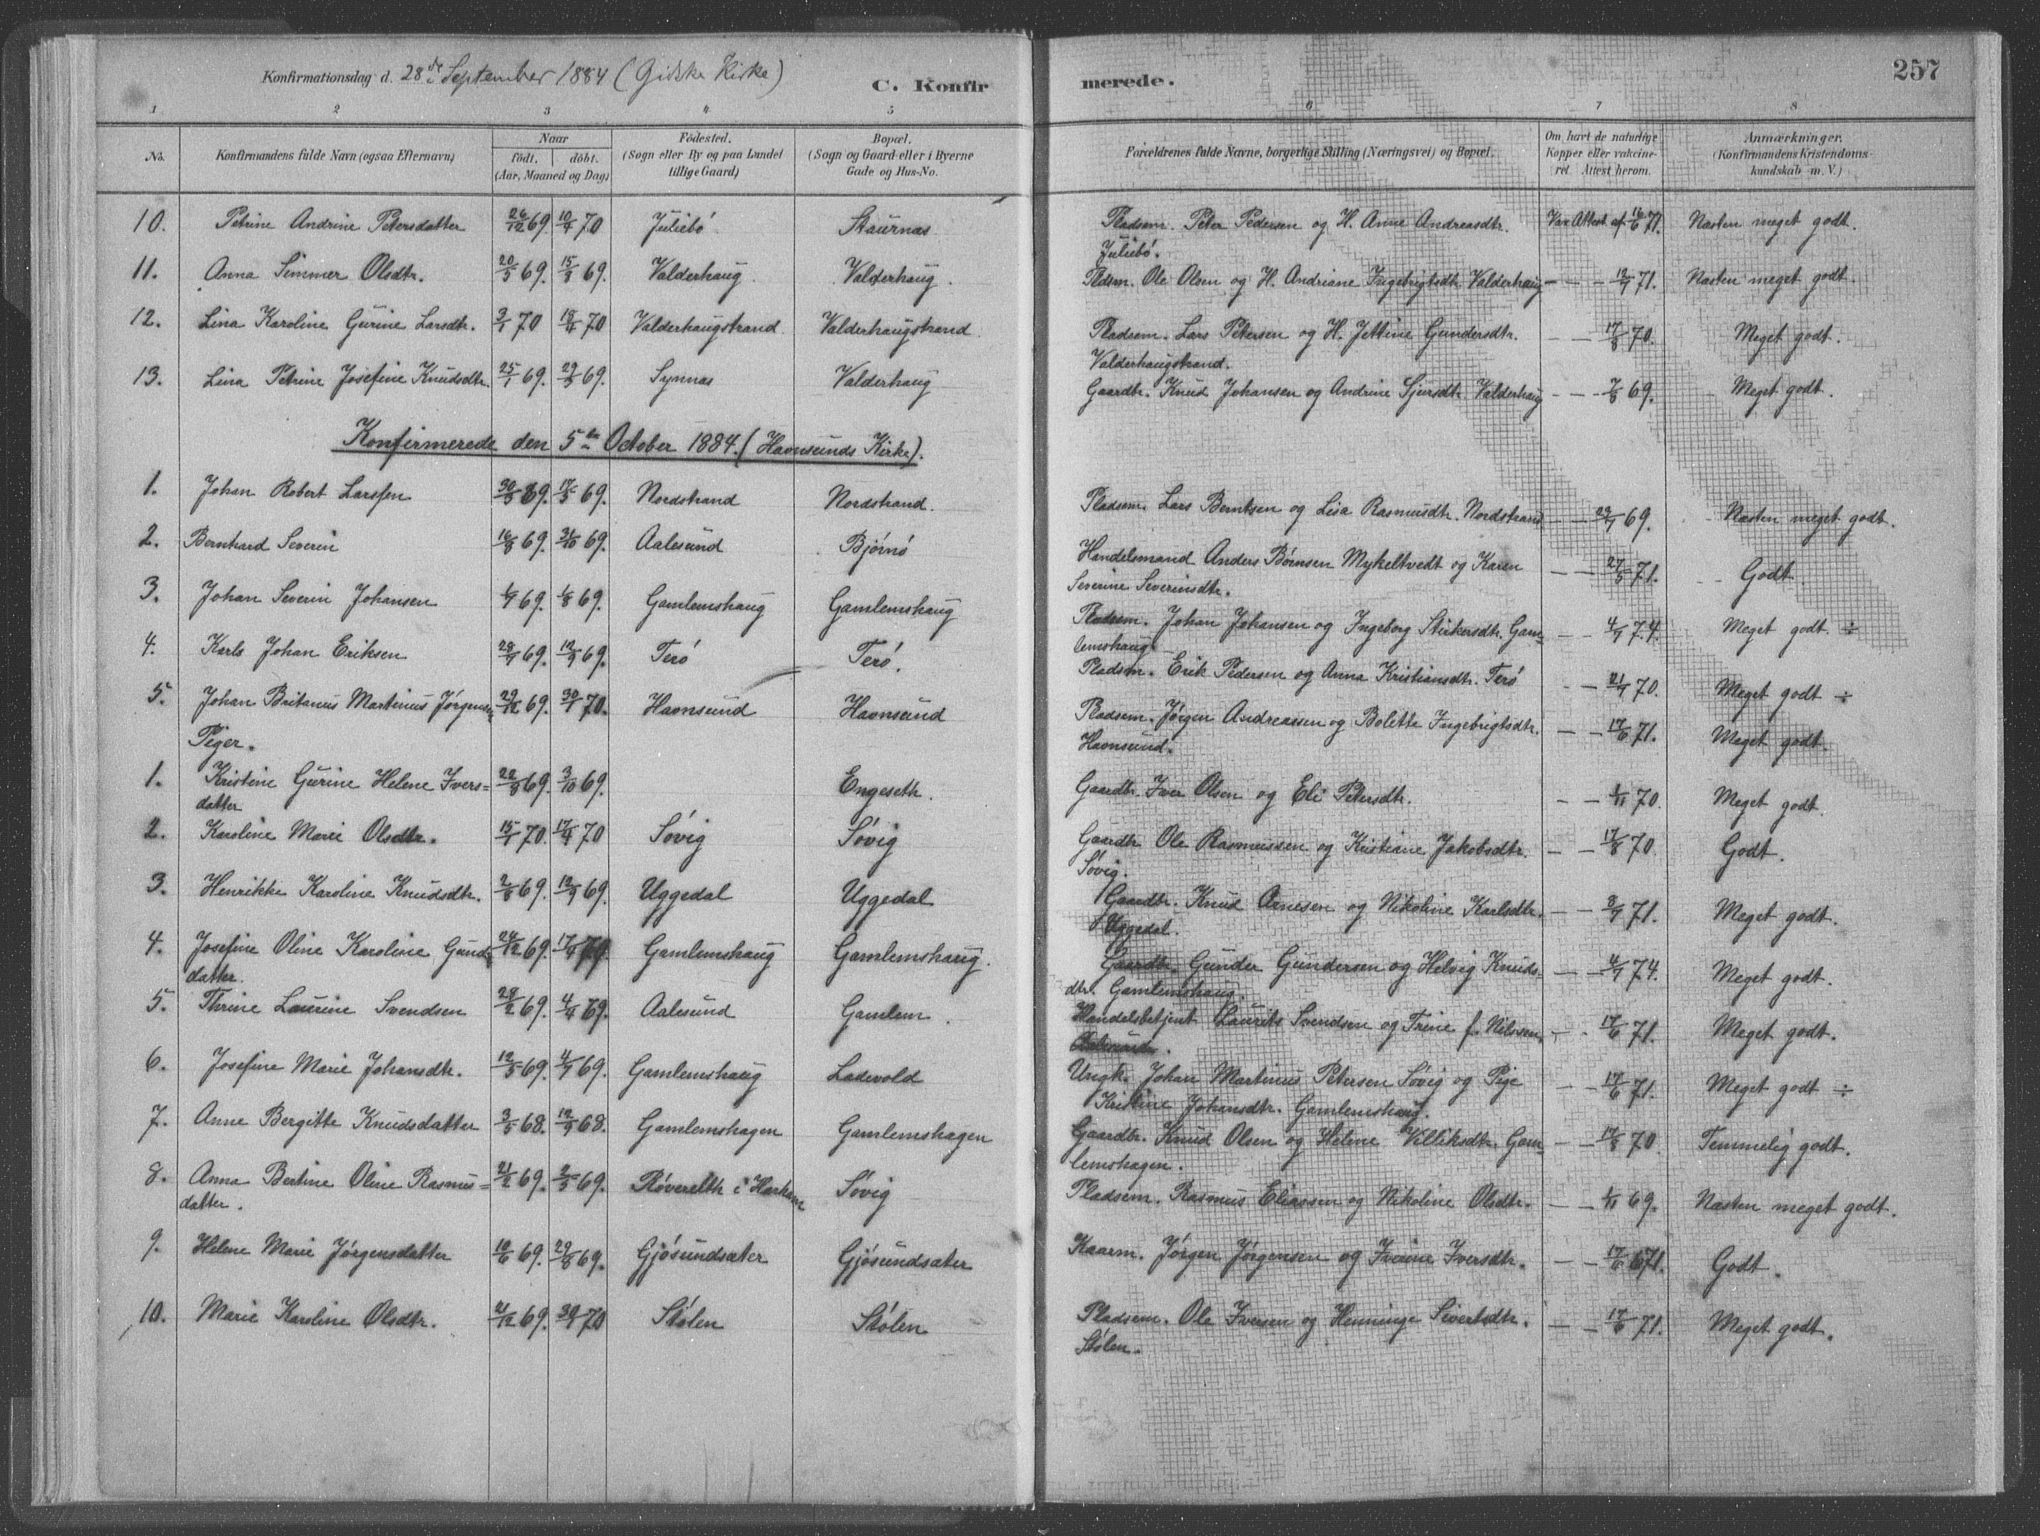 Konfirmationsdag d. 28de September 1884 (Gidske Kirke)
C. Konfirmerede.
257
1 2 3 4 5 6 7 8
No.
Konfirmandens fulde Navn (ogsaa Efternavn)
Naar
födt. döbt.
(Aar, Maaned og Dag)
Födested.
(Sogn eller By og paa Landet
tillige Gaard)
Bopæl.
(Sogn og Gaard eller i Byerne
Gade og Hus-No.
Forældrenes fulde Navne, borgerlige Stilling (Næringsvei) og Bopæl.
Om havt de naturlige
Kopper eller vakcine-
ret Attest herom.
Anmærkninger.
(Konfirmandens Kristendoms-
kundskab m. V.)
10. Petrine Andrine Petersdatter 26/12 69. 10/4 70 Juliebö Staurnas Pladsm. Peter Pedersen og H. Anne Andreasdtr. Vax Attest af 16/6 71. Næsten meget godt.
Juliebö.
11. Anna Simmer Olsdtr. 20/5 69. 15/8 69. Valderhaug Valderhaug. Pldsm. Ole Olsen og H. Andriane Ingebrigtsdtr. Valderhaug — — 12/7 71. Næsten meget godt.
12. Lina Karoline Gurine Larsdtr. 3/1 70 18/4 70 Valderhaugstrand Valderhaugstrand. Pladsm. Lars Petersen og H. Jettine Gundersdtr. — — 17/8 70. Meget godt.
Valderhaugstrand.
13. Lina Petrine Josefine Knudsdtr. 25/1 69. 29/3 69. Synnas Valderhaug Gaardbr. Knud Johansen og Andrine Sjursdtr. Valderhaug — — 7/8 69. Meget godt.
Konfirmerede den 5te October 1884. (Havnsunds Kirke).
1. Johan Robert Larssen 30/3 69. 17/5 69. Nordstrand Nordstrand. Pladsm. Lars Berntsen og Lisa Rasmusdtr. Nordstrand — — 29/7 69. Næsten meget godt.
2. Bernhard Severin 16/8 69. 31/10 69. Aalesund Bjørnö Handelsmand Anders Börnsen Mykeltvedt og Karen — — 27/5 71. Godt
Severine Severinsdtr.
3. Johan Severin Johansen 4/7 69. 1/8 69. Gamlemshaug Gamlemshaug Pladsm. Johan Johansen og Ingeborg Stirkersdtr. Gam- — — 4/7 74. Meget godt ÷
lemshaug
4. Karls Johan Eriksen 28/7 69. 12/9 69. Terö Terö. Pladsm. Erik Pedersen og Anna Kristiansdtr. Terö — — 21/7 70. Meget godt ÷
5. Johan Britanus Martinus Jørgensen 29/12 69. 30/1 70. Havnsund Havnsund Pladsm. Jørgen Andreassen og Bolette Ingebrigtsdtr. — — 17/6 71. Meget godt.
Havnsund.
Piger.
1. Kristine Gurine Helene Ivers- 22/8 69. 3/10 69. Engeseth. Gaardbr. Iver Olsen og Eli Petersdtr. — — 1/11 70. Meget godt.
datter
2. Karoline Marie Olsdtr. 15/1 70. 17/4 70 Søvig Søvig Gaardbr Ole Rasmussen og Kristiane Jakobsdtr. — — 17/8 70. Godt.
Søvig.
3. Henrikke Karoline Knudsdtr. 2/8 69. 12/9 69. Uggedal Uggedal Gaardbr. Knud Arnesen og Nikoline Karlsdtr. — — 8/7 71. Meget godt.
Uggedal.
4. Josefine Oline Karoline Gund 24/12 69. Gamlemshaug Gamlemshaug. Gaardbr. Gunder Gundersen og Helvig Knuds- — — 4/7 74. Meget godt.
datter. dtr. Gamlemshaug.
5. Thrine Laurine Svendsen 28/2 69. 4/4 69. Aalesund Gamlem. Handelsbetjent Laurits Svendsen og Trine f. Nilssen, — — 17/6 71. Meget godt.
Aalesund.
6. Josefine Marie Johansdtr. 12/5 69. 4/7 69. Gamlemshaug Ladevold Ungk. Johan Martinus Petersen Søvig og Pige — — 17/6 71. Meget godt ÷
Kristine Johansdtr. Gamlemshaug.
7. Anne Bergitte Knudsdatter 3/5 68. 12/7 68. Gamlemshagen Gamlemshagen Gaardbr. Knud Olsen og Helene Villiksdtr. Gam- — — 17/8 70. Temmelig godt.
lemshagen.
8. Anna Bertine Oline Rasmus- 21/2 69. 2/5 69. Søvig Pladsem. Rasmus Eliassen og Nikoline Olsdtr. — — 1/11 69. Næsten meget godt.
datter.
9. Helene Marie Jørgensdatter 12/6 69. 29/8 69. Gjøsundsæter Gjøsundsæter Kaarm. Jørgen Jørgensen og Iverine Iversdtr. — — 17/6 71. Godt.
10. Marie Karoline Olsdtr. 21/12 69. 30/1 70 Stølen Stølen Pladsem. Ole Iversen og Henninge Sivertsdtr. — — 17/6 71. Meget godt.
Stølen.